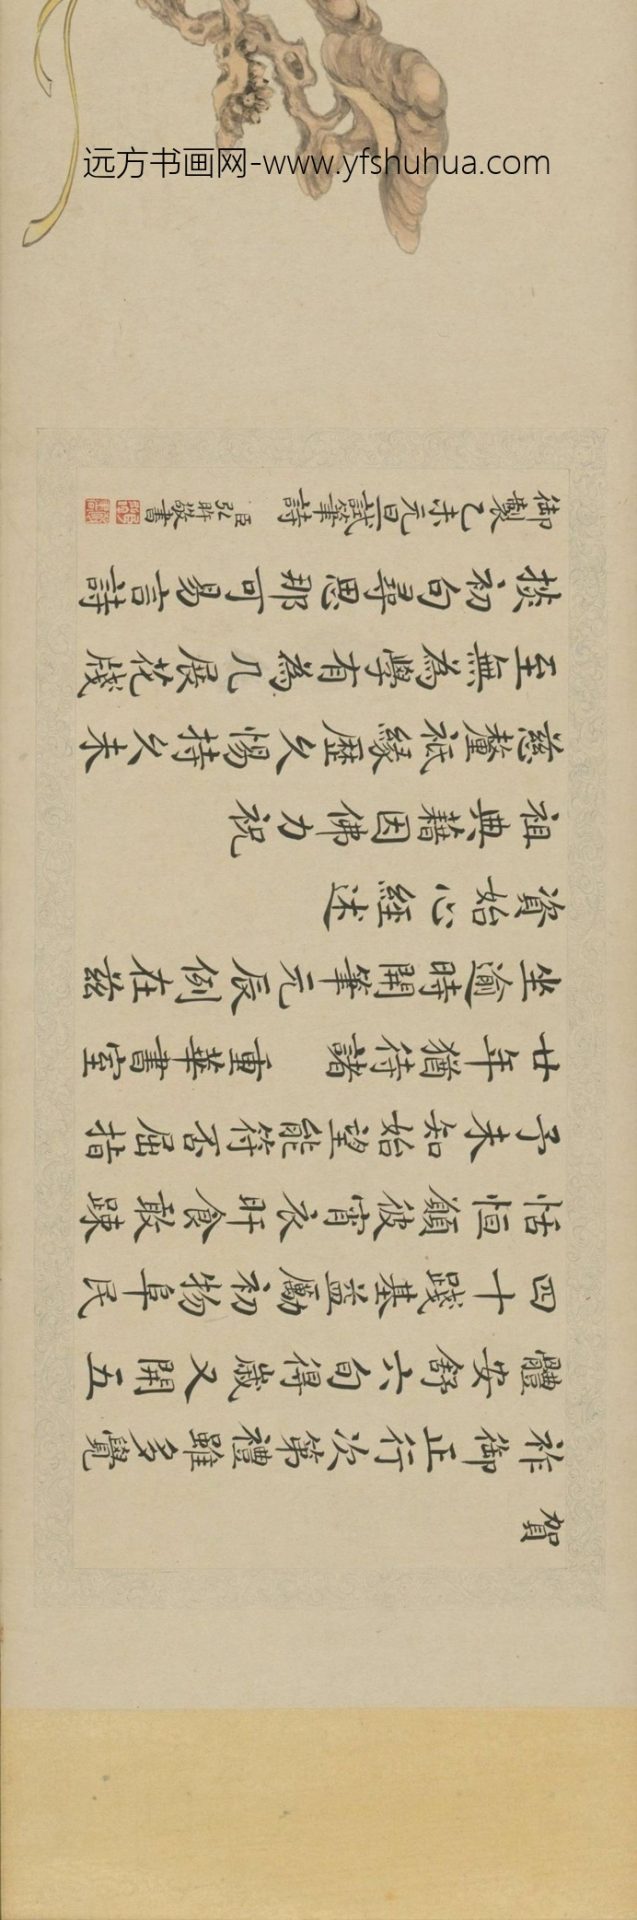 远方书画网-www.yfshuhua.com
賀
祚御正行次第禮雖多覺
體安舒六旬得歲又開五
四十踐基益勵初物阜民
恬恒願彼宵衣旰食敢踈
予未知始望能符否屈指
廿年猶待諸 重華書室
坐逾時開筆元辰例在茲
資始心經述
祖典藉因佛力祝
慈釐祗緣歷久惕持久未
至無為學有為几展花牋
掞初句尋思那可易言詩
御製乙未元旦試筆詩 臣弘旿敬書